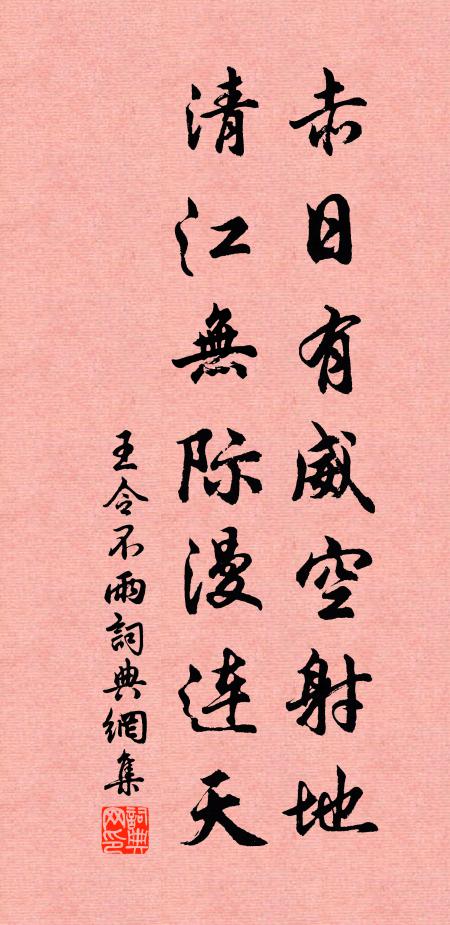 赤日有威空射地
清江無际漫连天
王令不雨詞典網集
詞典网印